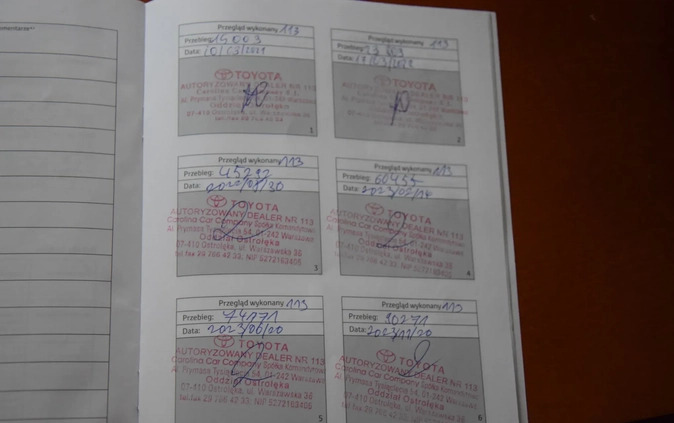 Przegląd wykonany 113
Przebieg: 15003
Data: 10/03/2021
TOYOTA
AUTORYZOWANY DEALER NR 113
Oddział Ostrołęka
1
Przegląd wykonany 113
Przebieg:
Data:
TOYOTA
AUTORYZOWANY DEALER NR 113
Oddział Ostrołęka
2
Przegląd wykonany 113
Przebieg: 45292
Data: 2022/08/30
TOYOTA
AUTORYZOWANY DEALER NR 113
Carolina Car Company Spółka Komandytowa
Al. Prymasa Tysiąclecia 54, 01-242 Warszawa
Oddział Ostrołęka
07-410 Ostrołęka, ul. Warszawska 36
tel./fax 29 766 42 33, NIP 5272163406
3
Przegląd wykonany 113
Przebieg: 60455
Data: 2023/02/14
TOYOTA
AUTORYZOWANY DEALER NR 113
Carolina Car Company Spółka Komandytowa
Al. Prymasa Tysiąclecia 54, 01-242 Warszawa
Oddział Ostrołęka
07-410 Ostrołęka, ul. Warszawska 36
tel./fax 29 766 42 33, NIP 5272163406
4
Przegląd wykonany 113
Przebieg: 74171
Data: 2023/06/20
TOYOTA
AUTORYZOWANY DEALER NR 113
Carolina Car Company Spółka Komandytowa
Al. Prymasa Tysiąclecia 54, 01-242 Warszawa
Oddział Ostrołęka
07-410 Ostrołęka, ul. Warszawska 36
tel./fax 29 766 42 33, NIP 5272163406
5
Przegląd wykonany 113
Przebieg: 90271
Data: 2023/11/20
TOYOTA
AUTORYZOWANY DEALER NR 113
Carolina Car Company Spółka Komandytowa
Al. Prymasa Tysiąclecia 54, 01-242 Warszawa
Oddział Ostrołęka
07-410 Ostrołęka, ul. Warszawska 36
tel./fax 29 766 42 33, NIP 5272163406
6